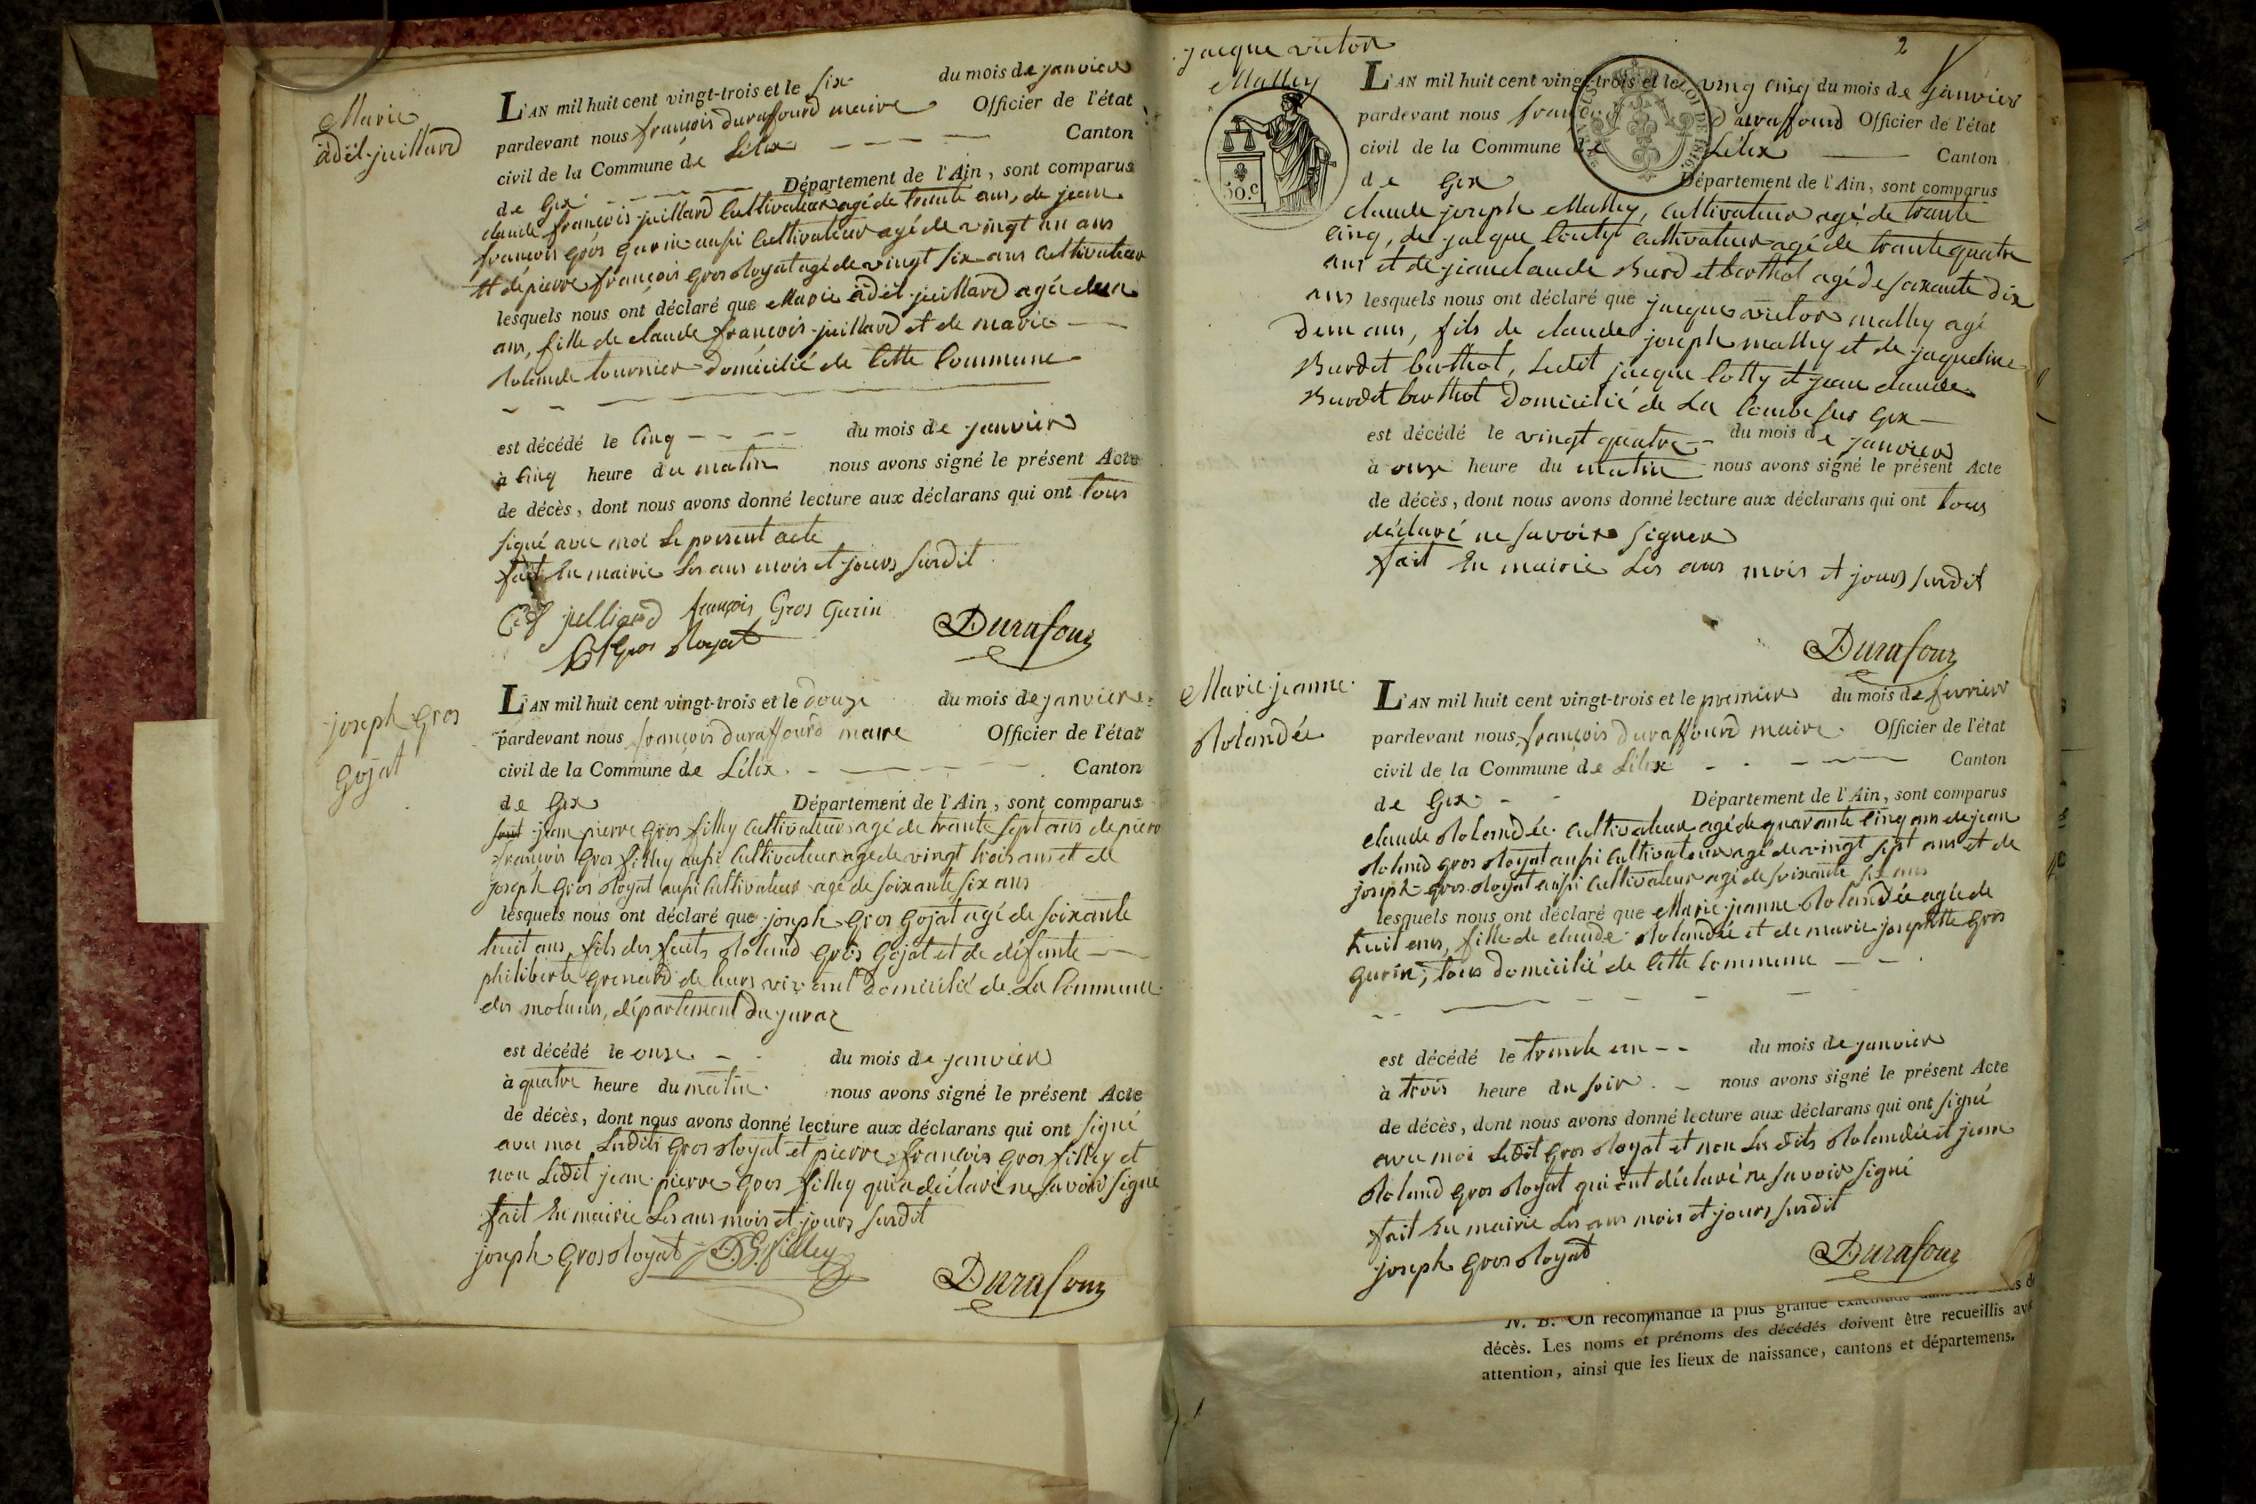 Marie
adèl juillard
L'AN mil huit cent vingt-trois et le six du mois de janvier
pardevant nous françois duraffourd maire Officier de l'état
civil de la Commune de Lélex Canton
de Gex Département de l'Ain, sont comparus
claude françois juillard Cultivateur agé de trante ans, de jean
françois gros gurin aussi Cultivateur agé de vingt un ans
et de pierre françois gros Royat agé de vingt six ans Cultivateur
lesquels nous ont déclaré que Marie adèl juillard agée d'un
ans, fille de claude françois juillard et de marie
Rolande tournier domicilié de Cette Commune
est décédé le Cinq du mois de janvier
à Cinq heure du matin nous avons signé le présent Acte
de décès, dont nous avons donné lecture aux déclarans qui ont tous
signé avec moi Le present acte
fait En mairie Les ans mois et jours susdit
françois Gros Gurin
Gros Royat
Durafour
joseph Gros
Gojat
L'AN mil huit cent vingt-trois et le douze du mois de janvier
pardevant nous françois duraffourd maire Officier de l'état
civil de la Commune de Lélex Canton
de Gex Département de l'Ain, sont comparus
jean pierre Gros filley Cultivateur agé de trante sept ans de piere
françois Gros filley aussi Cultivateur agé de vingt trois ans et de
joseph Gros Royat aussi Cultivateur agé de soixante six ans
lesquels nous ont déclaré que joseph Gros Gojat agé de soixante
huit ans, fils des feuts Roland Gros Gojat et de défunte
philiberte Grenard de leurs vivant Domicilié de La Commune
des molunes, département du juraz
est décédé le onze du mois de janvier
à quatre heure du matin nous avons signé le présent Acte
de décès, dont nous avons donné lecture aux déclarans qui ont signé
avec moi Lesdits Gros Royat et pierre françois Gros filley et
non Ledit jean pierre Gros filley qui a déclaré ne savoir signé
fait En mairie Les ans mois et jours susdit
joseph Gros Royat
Durafour
2
jacque victor
Malley
50.c
LOI DE 1816.
L'AN mil huit cent vingt-trois et le ving cinq du mois de janvier
pardevant nous françois Duraffourd Officier de l'état
civil de la Commune de Lélex Canton
de Gex Département de l'Ain, sont comparus
claude joseph Malley, Cultivateur agé de trante
Cinq, de jacque Couty Cultivateur agé de trante quatre
ans et de jean claude Burdet berthot agé de soixante dix
ans lesquels nous ont déclaré que jacque victor malley agé
d'un ans, fils de claude joseph malley et de jaqueline
Burdet berthot, Ledit jacque Cotty et jean claude
Burdet berthot Domicilié de La Combe sur Gex
est décédé le vingt quatre du mois de janvier
à onze heure du matin nous avons signé le présent Acte
de décès, dont nous avons donné lecture aux déclarans qui ont tous
déclaré ne savoir signer
fait En mairie Les ans mois et jours susdit
Durafour
Marie jeanne
Rolandée
L'AN mil huit cent vingt-trois et le premier du mois de fevrier
pardevant nous françois Duraffourd maire Officier de l'état
civil de la Commune de Lélex Canton
de Gex Département de l'Ain, sont comparus
claude Rolandée Cultivateur agé de quarante Cinq ans de jean
Roland gros Royat aussi Cultivateur agé de vingt sept ans et de
joseph gros Royat aussi Cultivateur agé de soixante six ans
lesquels nous ont déclaré que Marie jeanne Rolandée agée de
huit ans, fille de claude Rolandée et de marie josephtte Gros
Gurin, tous domicilié de Cette Commune
est décédé le trente un du mois de janvier
à trois heure du soir nous avons signé le présent Acte
de décès, dont nous avons donné lecture aux déclarans qui ont signé
avec moi Ledit Gros Royat et non Les dits Rolandée et jean
Roland gros Royat qui ont déclaré ne savoir signé
fait En mairie Les ans mois et jours susdit
joseph Gros Royat
Durafour
N. B. On recommande la plus grande exactitude dans les
décès. Les noms et prénoms des décédés doivent être recueillis
attention, ainsi que les lieux de naissance, cantons et départemens.